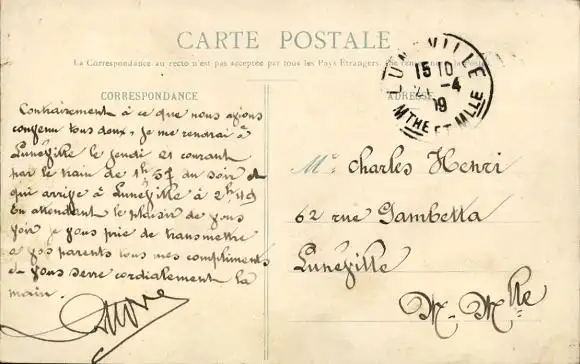 CARTE POSTALE
La Correspondance au recto n'est pas acceptée par tous les Pays Etrangers.
CORRESPONDANCE
Contrairement à ce que nous avions
convenu tous deux, je me rendrai à
Lunéville le jeudi 21 courant
par le train de 1h 37 du soir et
qui arrive à Lunéville à 2h 49
En attendant le plaisir de vous
voir je vous prie de transmettre
à vos parents tous mes compliments
et vous serre cordialement la
main.
ADRESSE
LUNEVILLE
15 10
21 -4
09
MTHE ET MLLE
Mr Charles Henri
62 rue Gambetta
Lunéville
M-Mlle